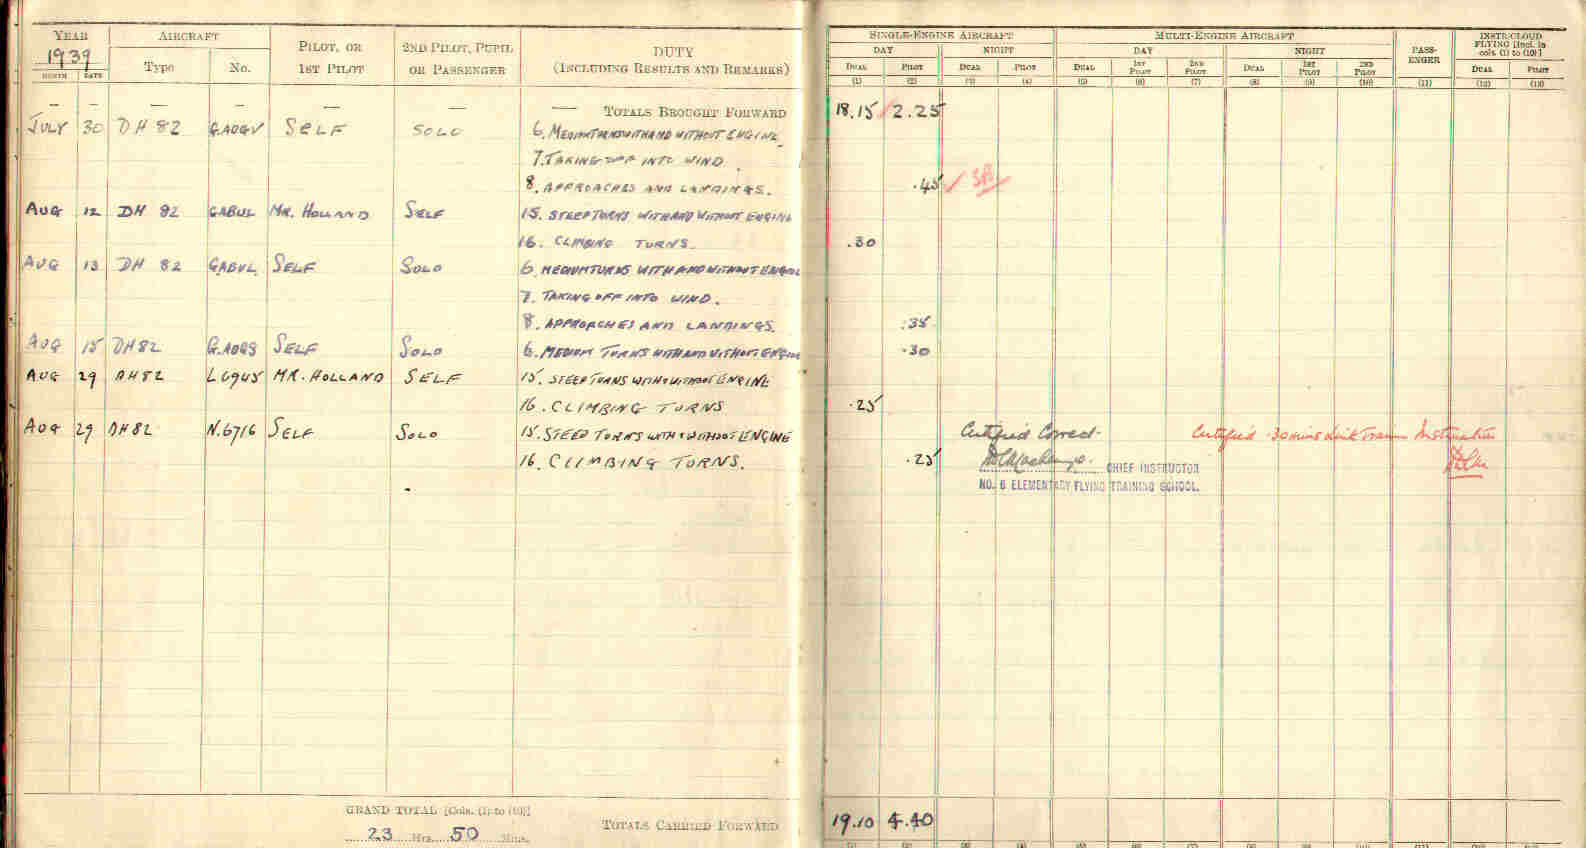 YEAR AIRCRAFT PILOT, OR 2ND PILOT, PUPIL DUTY SINGLE-ENGINE AIRCRAFT MULTI-ENGINE AIRCRAFT PASS- INSTR/CLOUD
1939 Type No. 1ST PILOT OR PASSENGER (INCLUDING RESULTS AND REMARKS) DAY NIGHT DAY NIGHT ENGER FLYING [Incl. in
MONTH DATE DUAL PILOT DUAL PILOT DUAL 1ST PILOT 2ND PILOT DUAL 1ST PILOT 2ND PILOT cols. (1) to (10)]
DUAL PILOT
(1) (2) (3) (4) (5) (6) (7) (8) (9) (10) (11) (12) (13)
— — — — — — — TOTALS BROUGHT FORWARD 18.15 2.25
JULY 30 DH 82 G.ADGV SELF SOLO 6. MEDIUM TURNS WITH AND WITHOUT ENGINE.
7. TAKING OFF INTO WIND
8. APPROACHES AND LANDINGS. .45
AUG 12 DH 82 GABUL MR. HOLLAND SELF 15. STEEP TURNS WITH AND WITHOUT ENGINE
16. CLIMBING TURNS. .30
AUG 13 DH 82 GABUL SELF SOLO 6. MEDIUM TURNS WITH AND WITHOUT ENGINE
7. TAKING OFF INTO WIND.
8. APPROACHES AND LANDINGS. .35
AUG 15 DH82 G.ADGS SELF SOLO 6. MEDIUM TURNS WITH AND WITHOUT ENGINE .30
AUG 29 DH82 L6945 MR. HOLLAND SELF 15. STEEP TURNS WITH & WITHOUT ENGINE
16. CLIMBING TURNS .25
AUG 29 DH82 N.6716 SELF SOLO 15. STEEP TURNS WITH & WITHOUT ENGINE Certified Correct. Certified .30 mins Link Trainer Instruction
16. CLIMBING TURNS. .25 CHIEF INSTRUCTOR
NO. 6 ELEMENTARY FLYING TRAINING SCHOOL.
GRAND TOTAL [Cols. (1) to (10)]
23 Hrs. 50 Mins. TOTALS CARRIED FORWARD 19.10 4.40